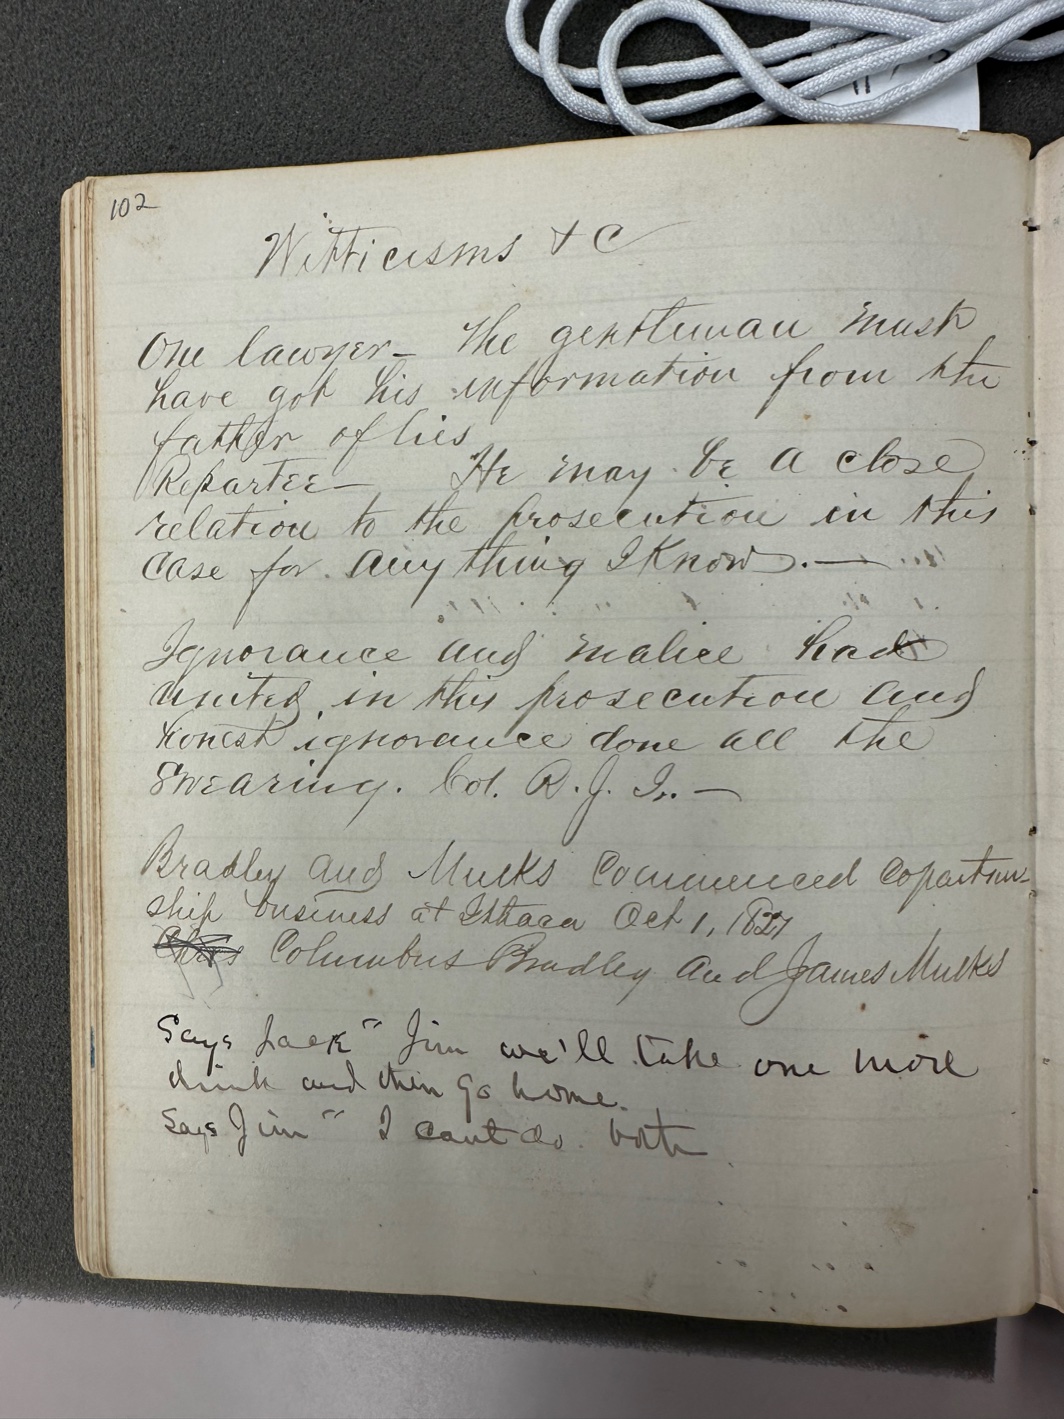 102
Witticisms & C
One lawyer- The gentleman must
have got his information from the
father of lies
Repartee- He may be a close
relation to the prosecution in this
case for any thing I Know. -
Ignorance and malice had
united in this prosecution and
honest ignorance done all the
swearing. Col. R. J. I. -
Bradley and Mulks Commenced Copartner-
ship business at Ithaca Oct 1, 1827
Columbus Bradley and James Mulks
Says Jack " Jim we'll take one more
drink and then go home.
Says Jim " I cant do both